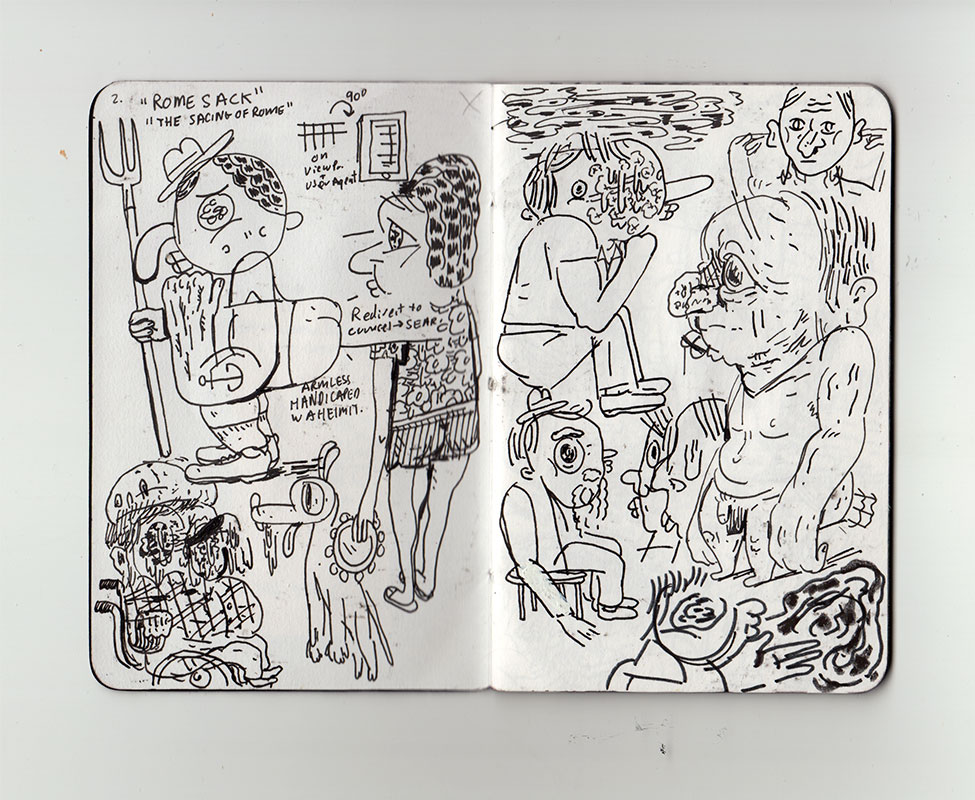 2. "ROME SACK"
"THE SACING OF ROME"
90°
on
viewPr.
+
User Agent
Redirect to
cancel → SEAR.
ARMLESS
HANDICAPED
WAHEIMIT.